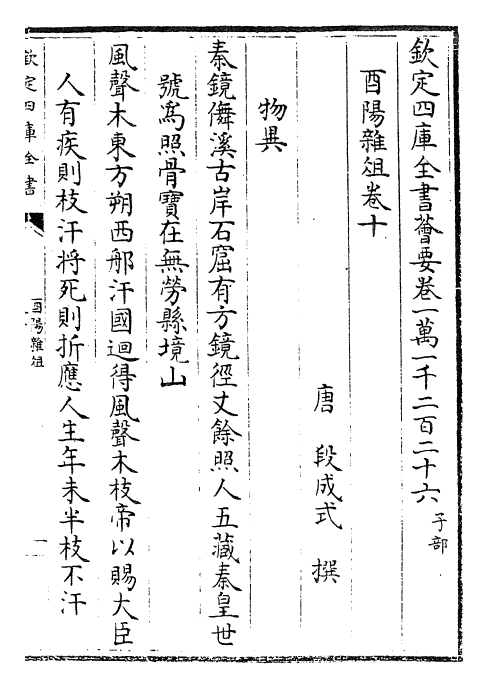 欽定四庫全書薈要卷一萬一千二百二十六 子部
酉陽雜俎卷十
唐 段成式 撰
物異
秦鏡儛溪古岸石窟有方鏡徑丈餘照人五藏秦皇世
號為照骨寶在無勞縣境山
風聲木東方朔西那汗國迴得風聲木枝帝以賜大臣
人有疾則枝汗將死則折應人生年未半枝不汗
欽定四庫全書
酉陽雜俎
一